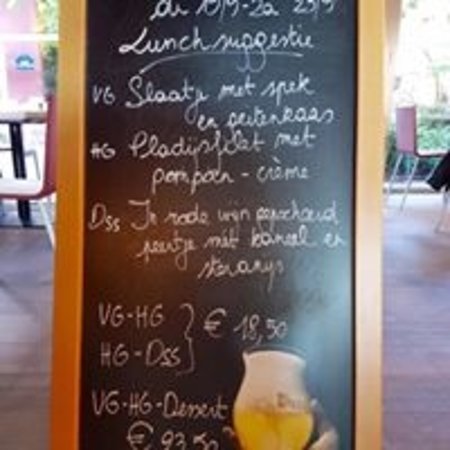 di 19/9-za 23/9
Lunchsuggestie
VG Slaatje met spek
en geitenkaas
HG Pladijsfilet met
pompoen-crème
Dss In rode wijn gepocheerd
peertje mét kaneel en
steranijs
VG-HG
HG-Dss
€ 18,50
VG-HG-Dessert
€ 23,50